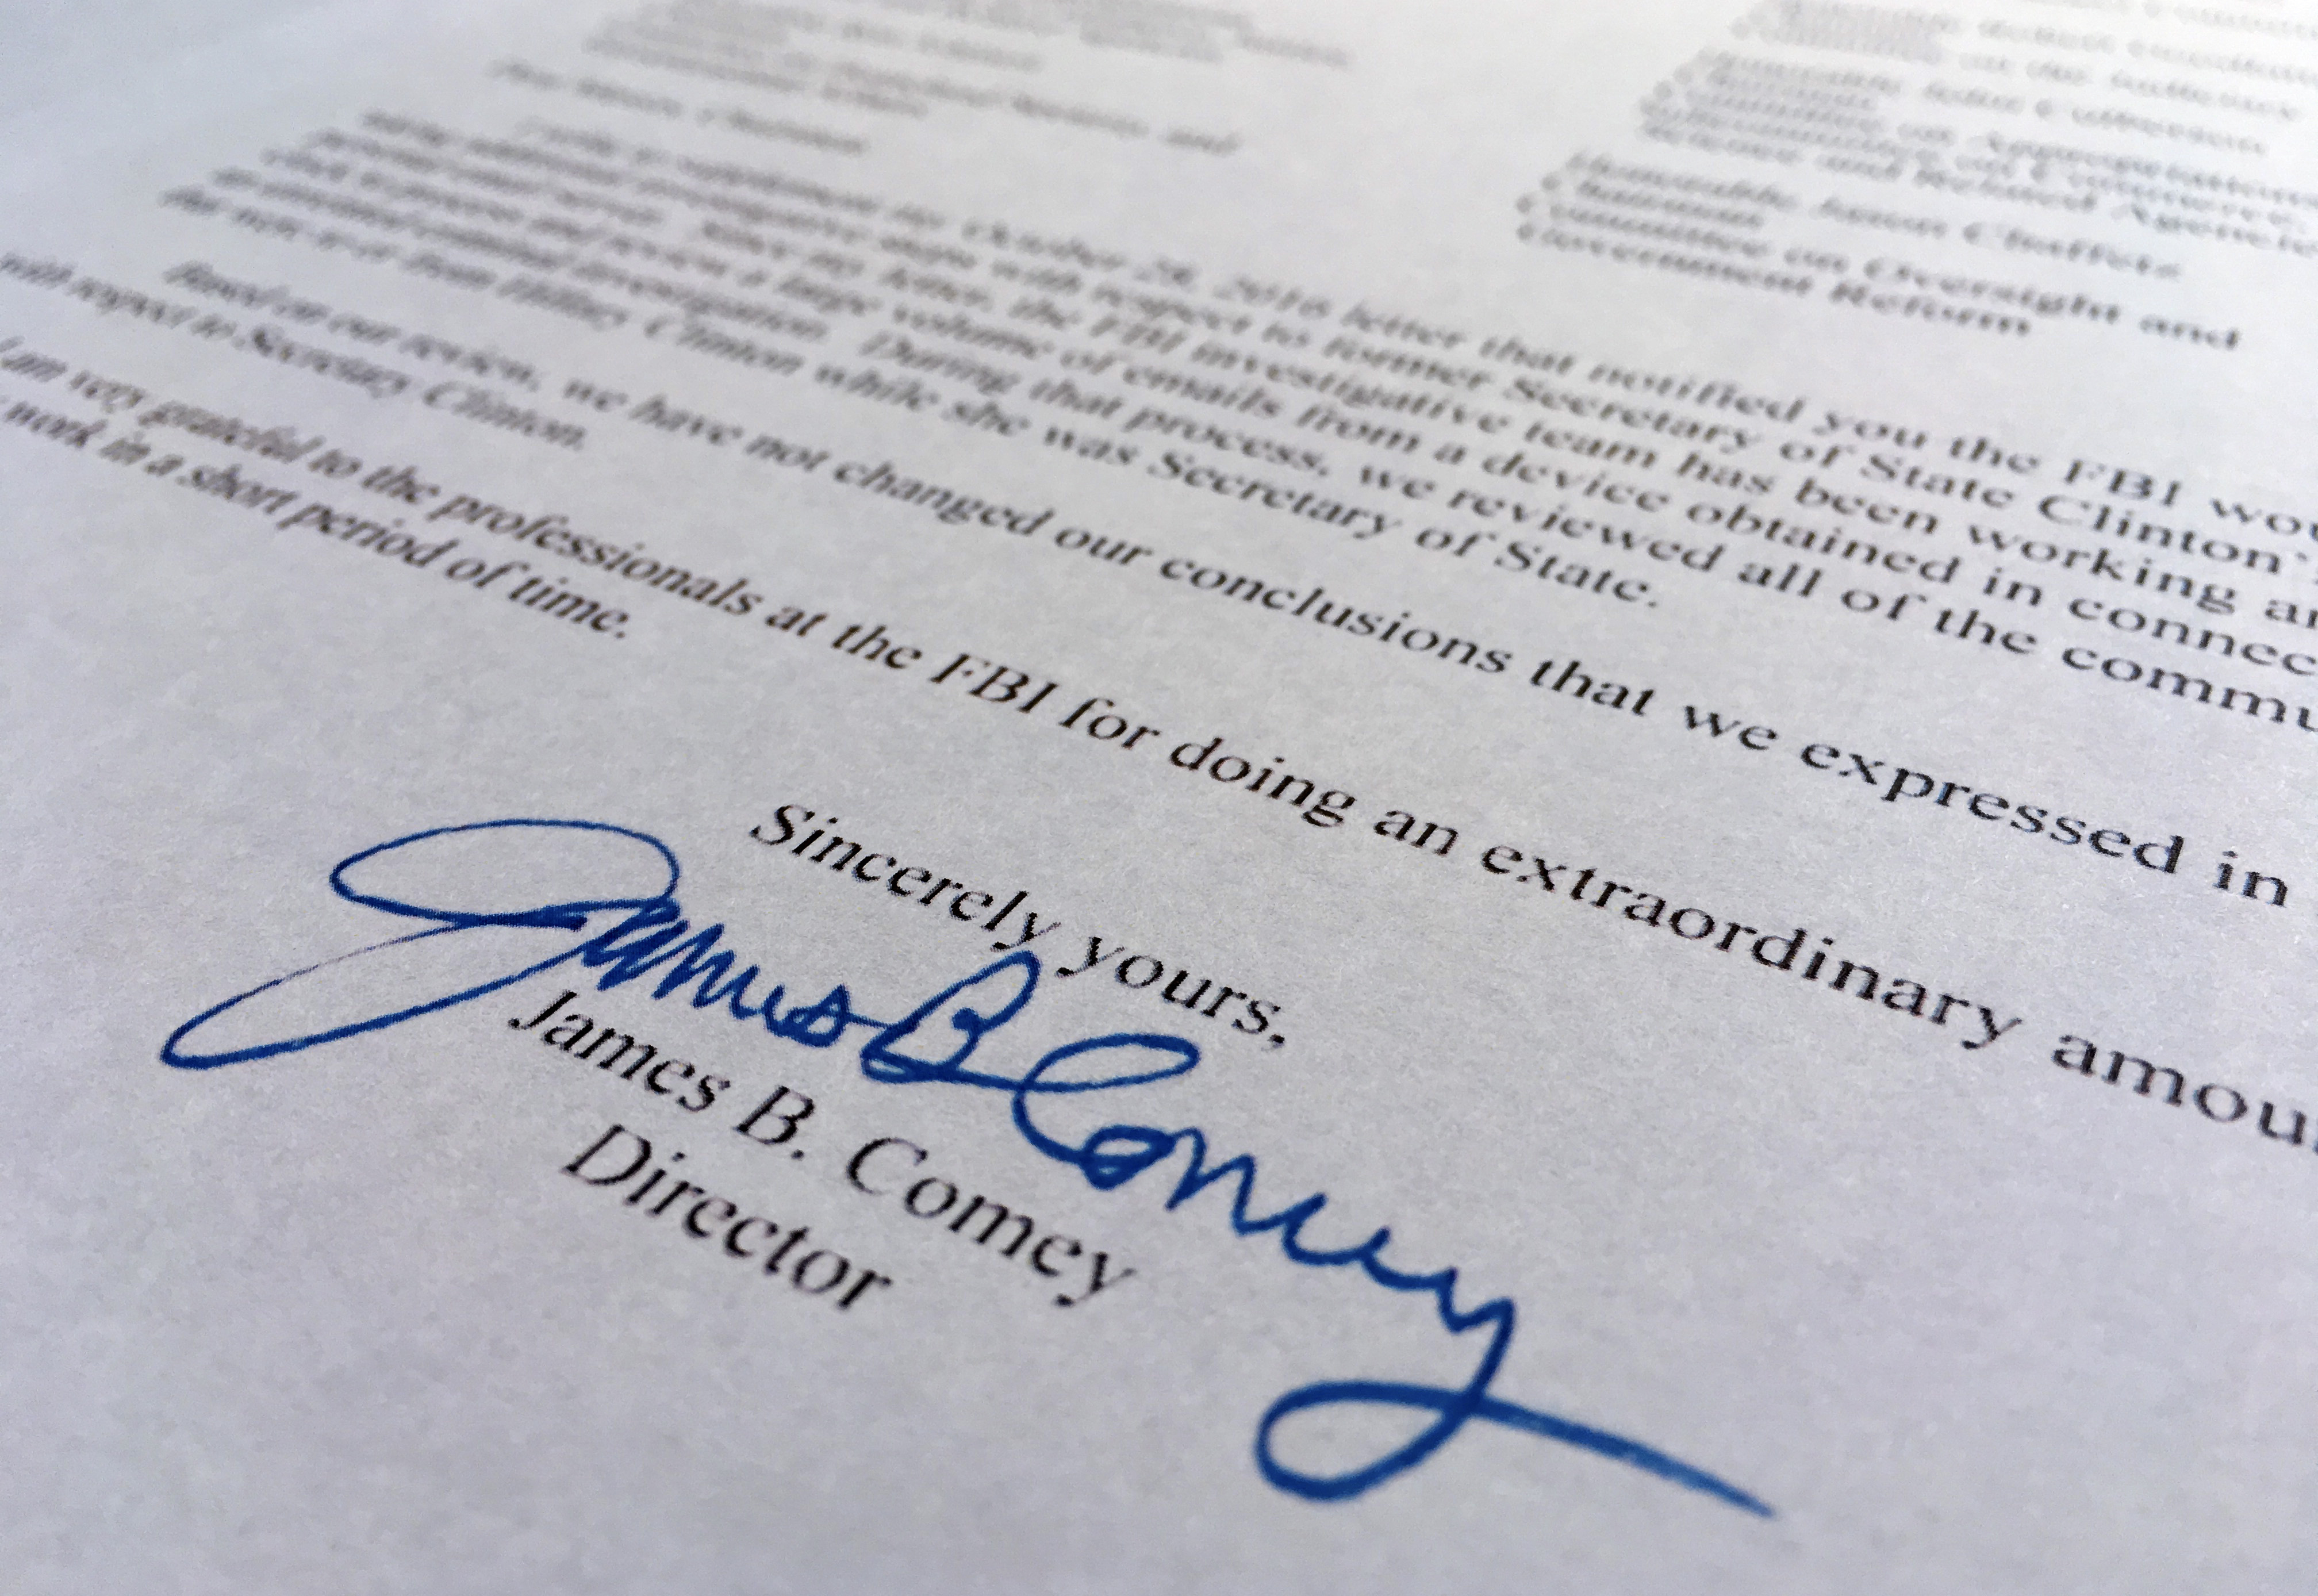 Honorable John Culberson
Committee on Appropriations
Related Agencies
Honorable Jason Chaffetz
Chairman
Committee on Oversight and
Government Reform
Dear Messrs. Chairmen:
I write to supplement my October 28, 2016 letter that notified you the FBI wou
additional investigative steps with respect to former Secretary of State Clinton's
Since my letter, the FBI investigative team has been working ar
to process and review a large volume of emails from a device obtained in connec
criminal investigation. During that process, we reviewed all of the commu
from Hillary Clinton while she was Secretary of State.
Based on our review, we have not changed our conclusions that we expressed in
with respect to Secretary Clinton.
I am very grateful to the professionals at the FBI for doing an extraordinary amou
work in a short period of time.
Sincerely yours,
James B Comey
James B. Comey
Director